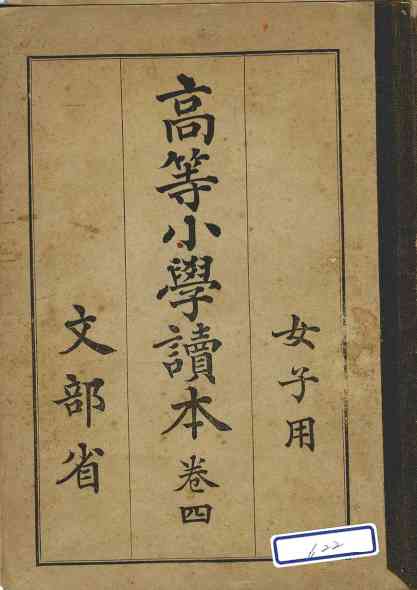 女子用
高等小學讀本 卷四
文部省
622